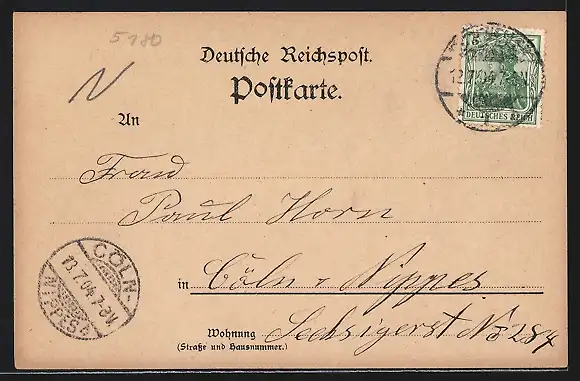 5180
Deutsche Reichspost.
Postkarte.
N
12.7.04.7-8N
DEUTSCHES REICH
An
Frau
Paul Horn
in Cöln-Nippes
Wohnung Sechzigerst No 284
(Straße und Hausnummer.)
CÖLN-
13.7.04.7-8V.
NIPPES